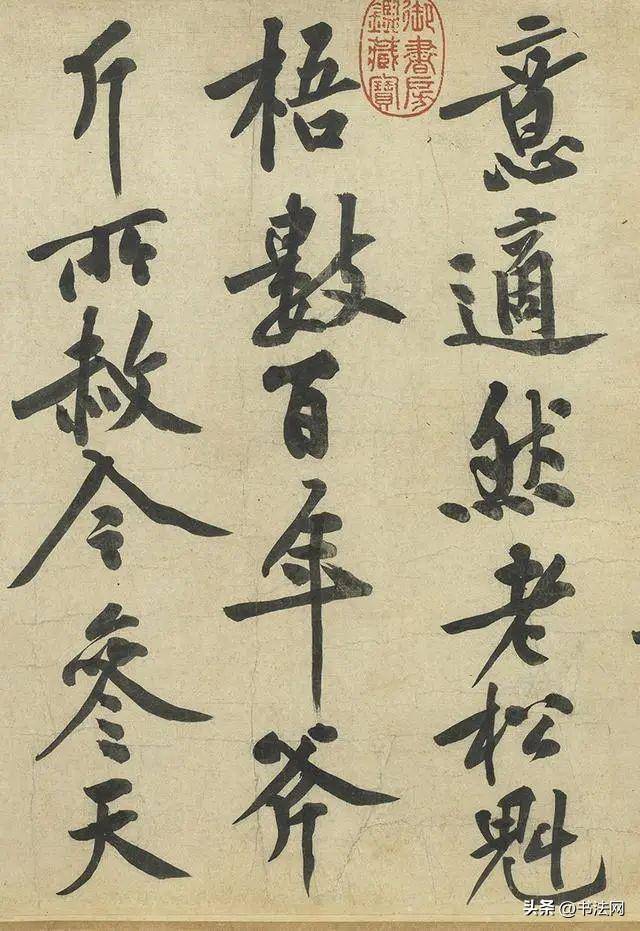 意適然老松魁
梧數百年斧
斤所赦今參天
御書房
鑑藏寶
头条 @书法网